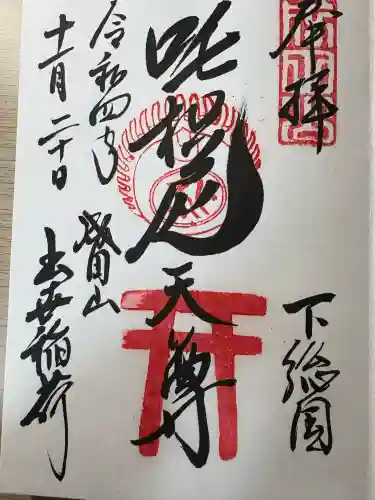 奉拝
下総国
吒枳尼天尊
成田山
出世稲荷
令和四年
十一月二十日